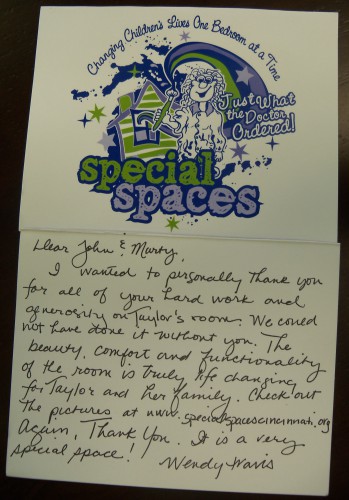 Changing Children's Lives One Bedroom at a Time
Just What
the Doctor
Ordered!
special
spaces
Dear John & Marty,
I wanted to personally thank you
for all of your hard work and
generosity on Taylor's room. We could
not have done it without you. The
beauty, comfort and functionality
of the room is truly life changing
for Taylor and her family. Check out
the pictures at www.specialspacescincinnati.org
Again, Thank You. It is a very
special space!
Wendy Travis